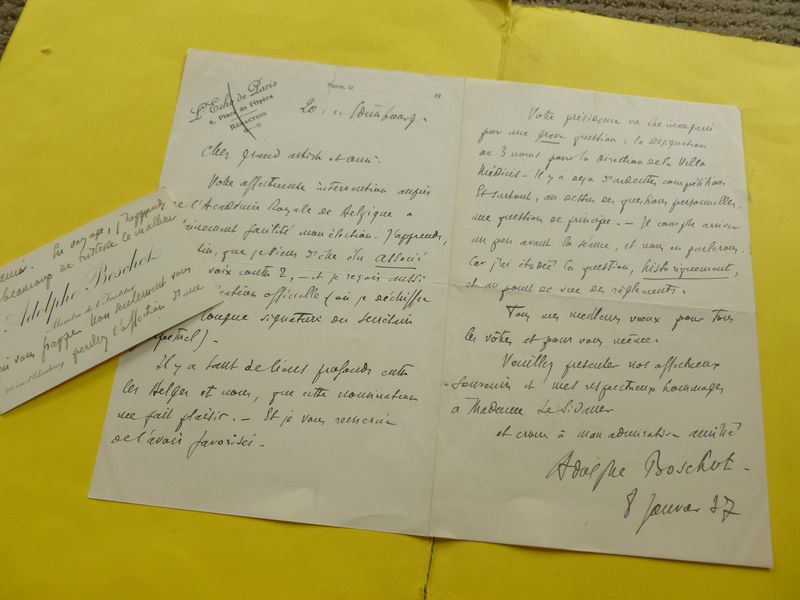 L'Echo de Paris
6, Place de l'Opéra
RÉDACTION
Paris, le 19
20, r.
Cher grand artiste et ami,
Votre affectueuse intervention auprès
de l'Académie Royale de Belgique a
facilité mon élection. J'apprends,
que je viens d'être élu associé
voix contre 2, — et je reçois aussi
officielle (où je déchiffre
longue signature du Secrétaire
Il y a tant de liens profonds entre
les Belges et nous, que cette nomination
me fait plaisir. — Et je vous remercie
de l'avoir favorisée.
Votre présidence va être inaugurée
par une grave question : la désignation
de 3 noms pour la direction de la Villa
Médicis. Il y a déjà d'ardentes compétitions.
Et surtout, au dessus des questions personnelles,
une question de principe. — Je compte arriver
un peu avant la séance, et nous en parlerons.
Car j'ai étudié la question, historiquement,
et au point de vue des règlements.
Tous mes meilleurs voeux pour tous
les vôtres et pour vous même.
Veuillez présenter nos affectueux
souvenirs et mes respectueux hommages
à Madame Le Sidaner
et croire à mon admirative amitié
Adolphe Boschot
8 Janvier 37
En voyage, j'apprends
beaucoup de tristesse le malheur
Adolphe Boschot
Membre de l'Institut
qui vous frappe. Non seulement vous
perdez l'affection d'une